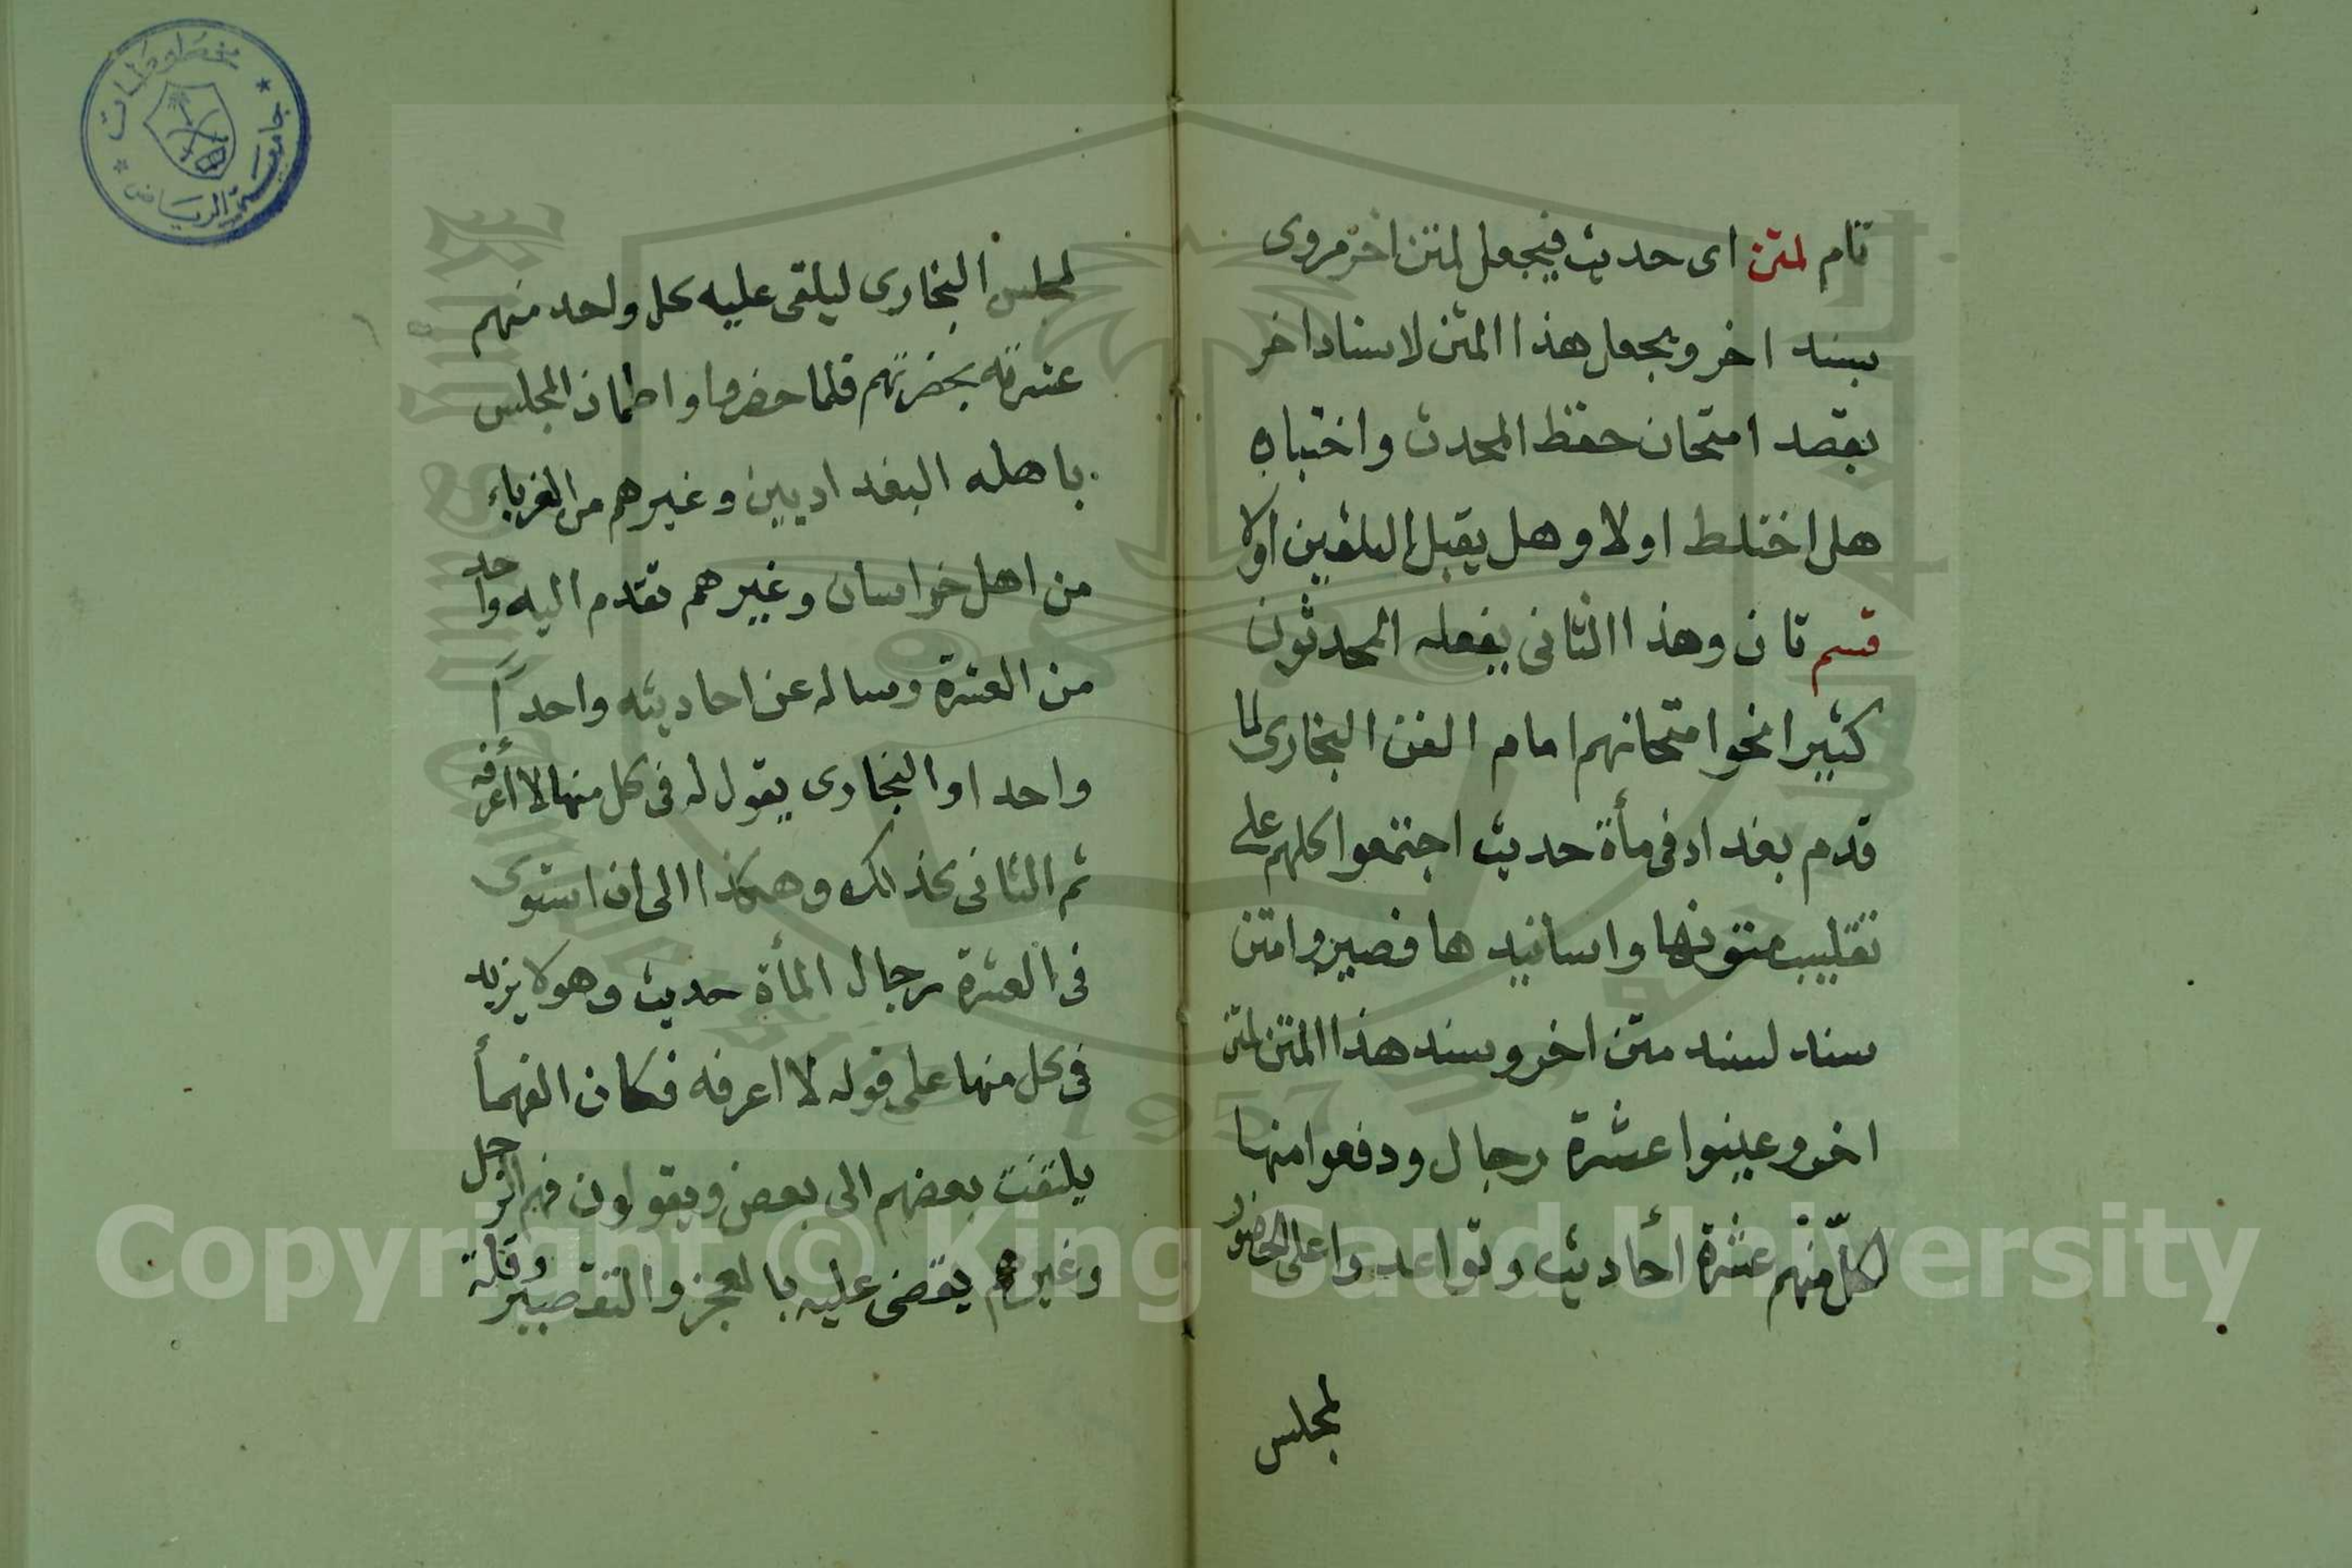 تام لمتن اى حديث فيجعل لمتن اخر مروى
بسند اخر ويجعل هذا المتن لاسناد اخر
بقصد امتحان حفظ المحدث واختباره
هل اختلط اولا وهل يقبل التلقين اولا
قسم ثان وهذا الثانى يفعله المحدثون
كثيرا نحو امتحانهم امام الفن البخارى لما
قدم بغداد فى مأة حديث اجتمعوا كلهم على
تقليب متونها واسانيدها فصيروا متن
سند لسند متن اخر وسند هذا المتن لمتن
اخر وعينوا عشرة رجال ودفعوا منها
لكل منهم عشرة أحاديث وتواعدوا على الحضور
لمجلس
لمجلس البخارى ليلقى عليه كل واحد منهم
عشرته بحضرتهم فلما حضروا واطمان المجلس
باهله البغداديين وغيرهم من الغرباء
من اهل خراسان وغيرهم تقدم اليه واحد
من العشرة وساله عن احاديثه واحداً
واحدا والبخارى يقول له فى كل منها لا أعرفه
ثم الثانى كذلك وهكذا الى ان استوى
فى العشرة رجال المأة حديث وهو لا يزيد
فى كل منها على قوله لا اعرفه فكان الفهمأ
يلتفت بعضهم الى بعض ويقولون فهم الرجل
وغيرهم يقضى عليه بالعجز والتقصير وقلة
مخطوطات
جامعة الرياض
1957
Copyright © King Saud University